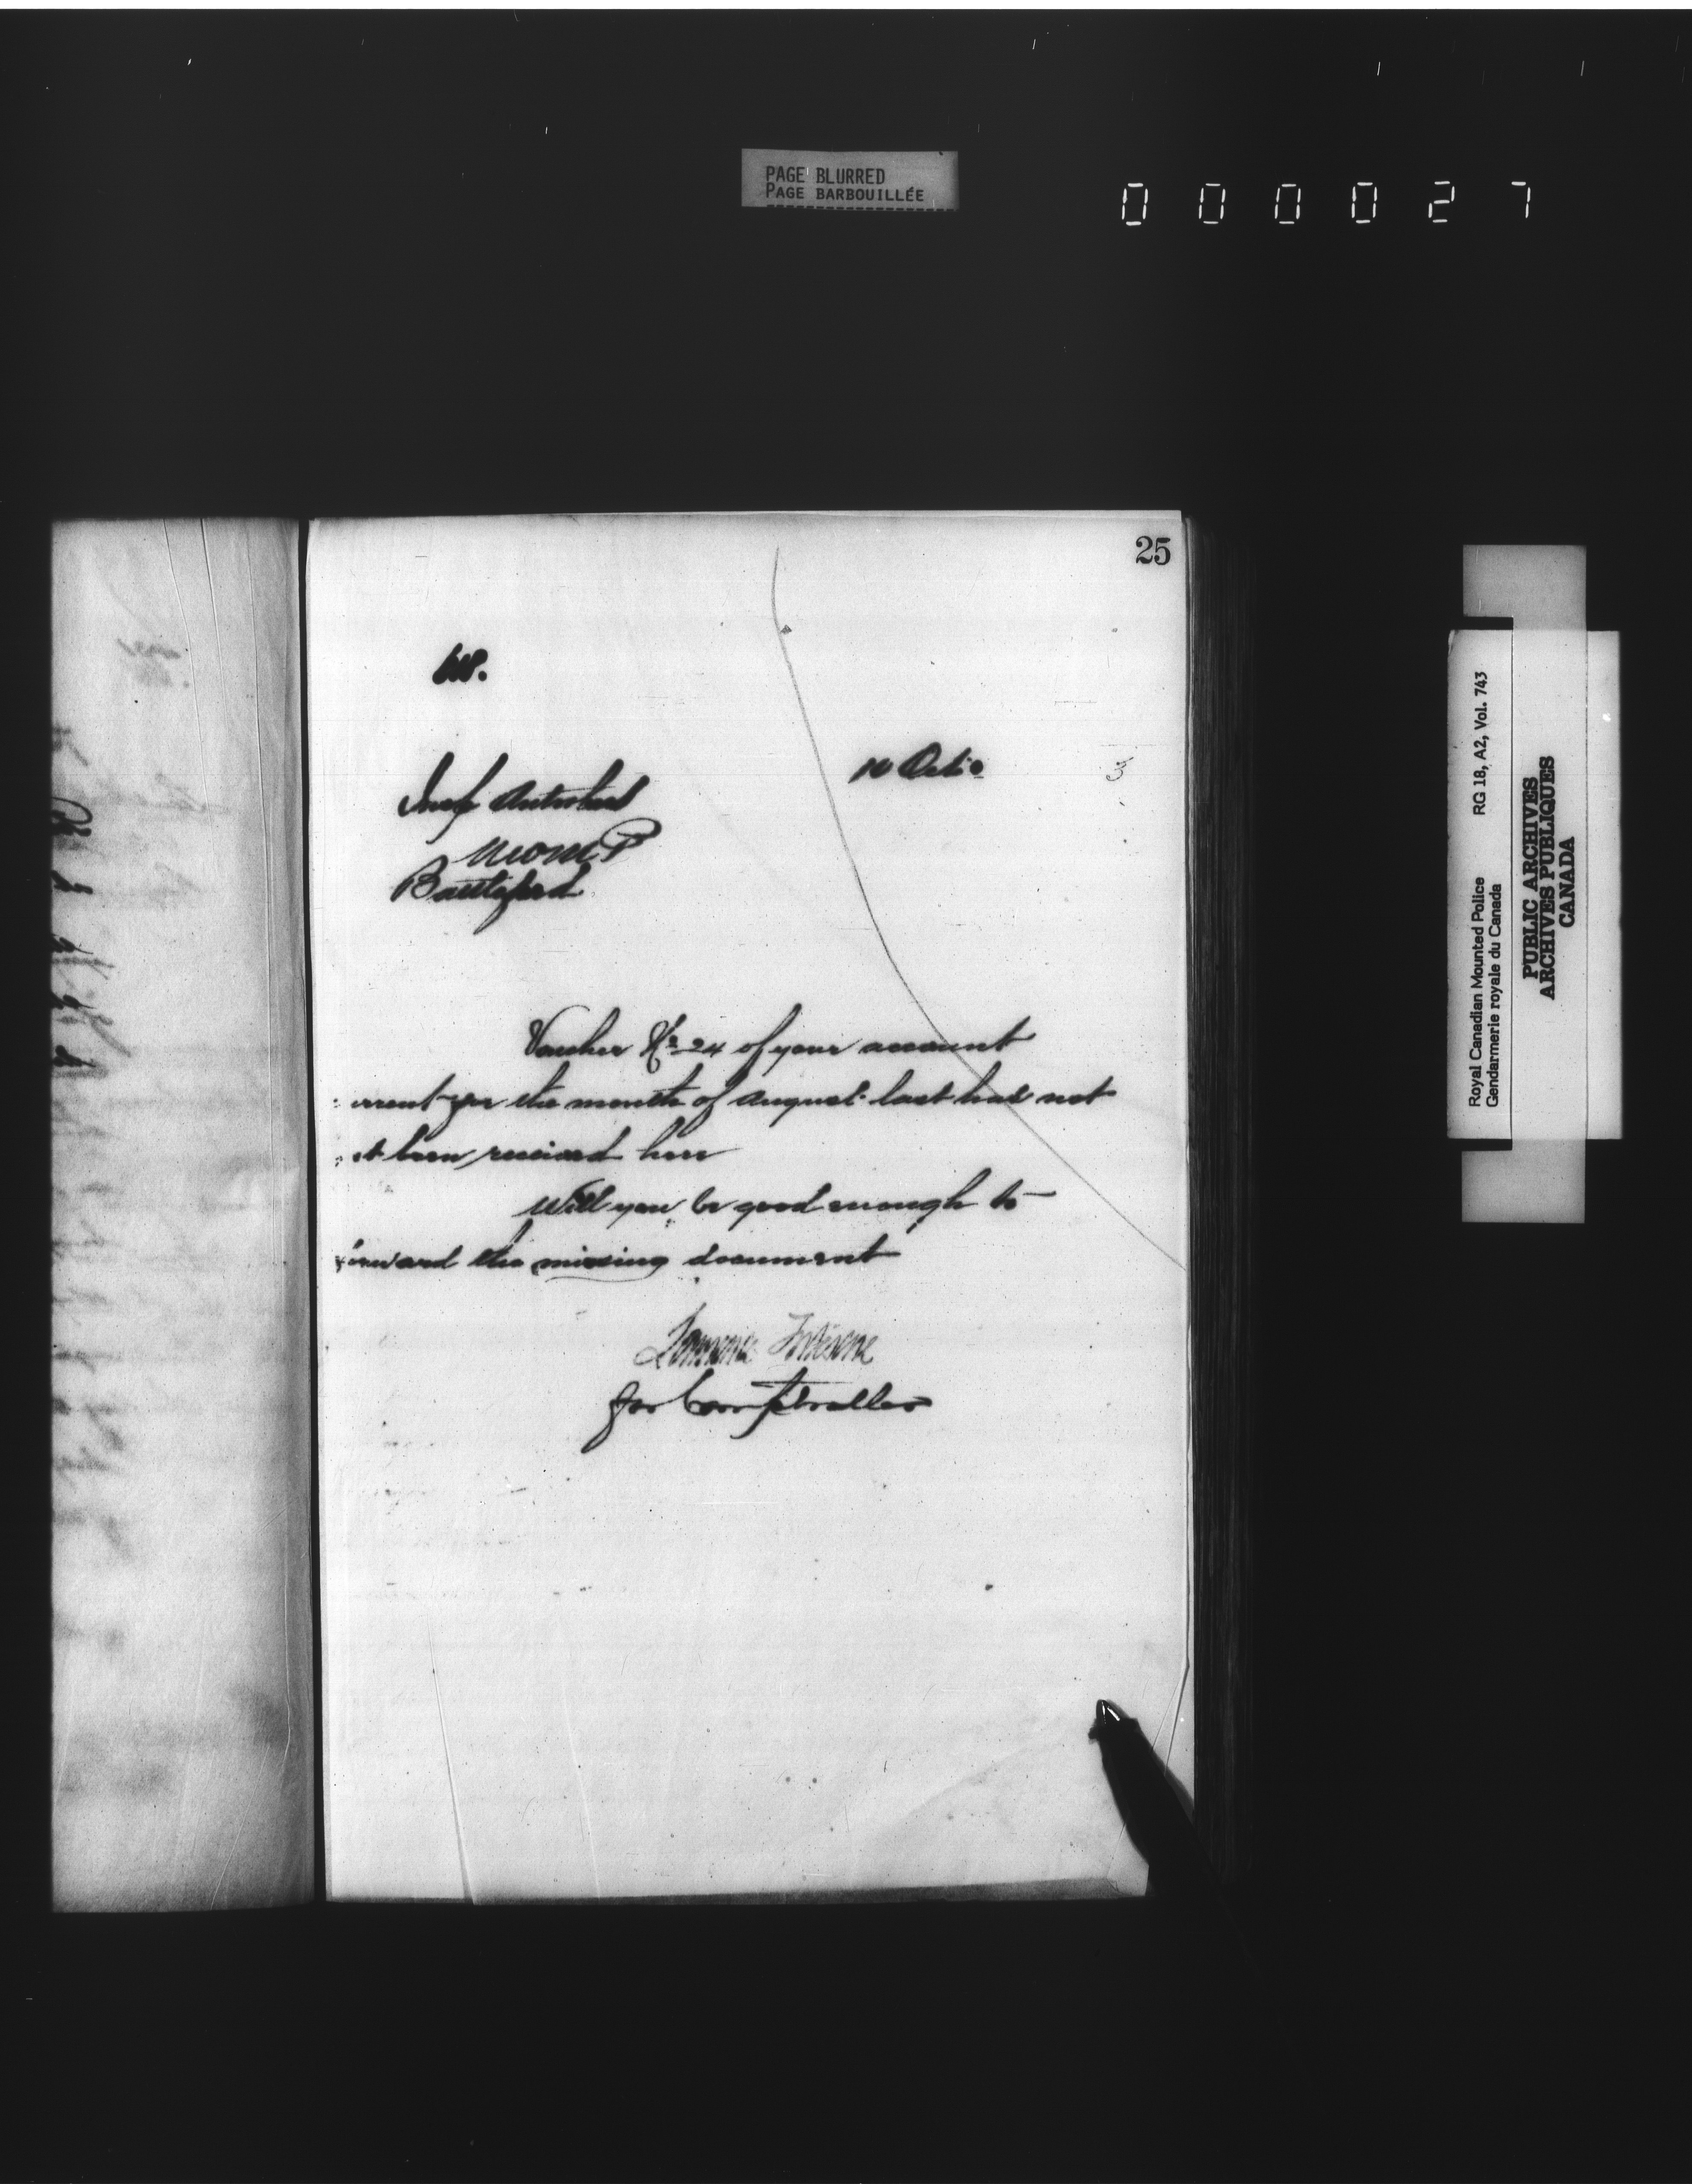 PAGE BLURRED
PAGE BARBOUILLÉE
000027
25
10 Oct.
3
Insp Antrobus
NWMP
Battleford
Voucher No 24 of your account
urrent for the month of August last has not
et been received here
Will you be good enough to
forward the missing document
for Comptroller
Royal Canadian Mounted Police
Gendarmerie royale du Canada
RG 18, A2, Vol. 743
PUBLIC ARCHIVES
ARCHIVES PUBLIQUES
CANADA